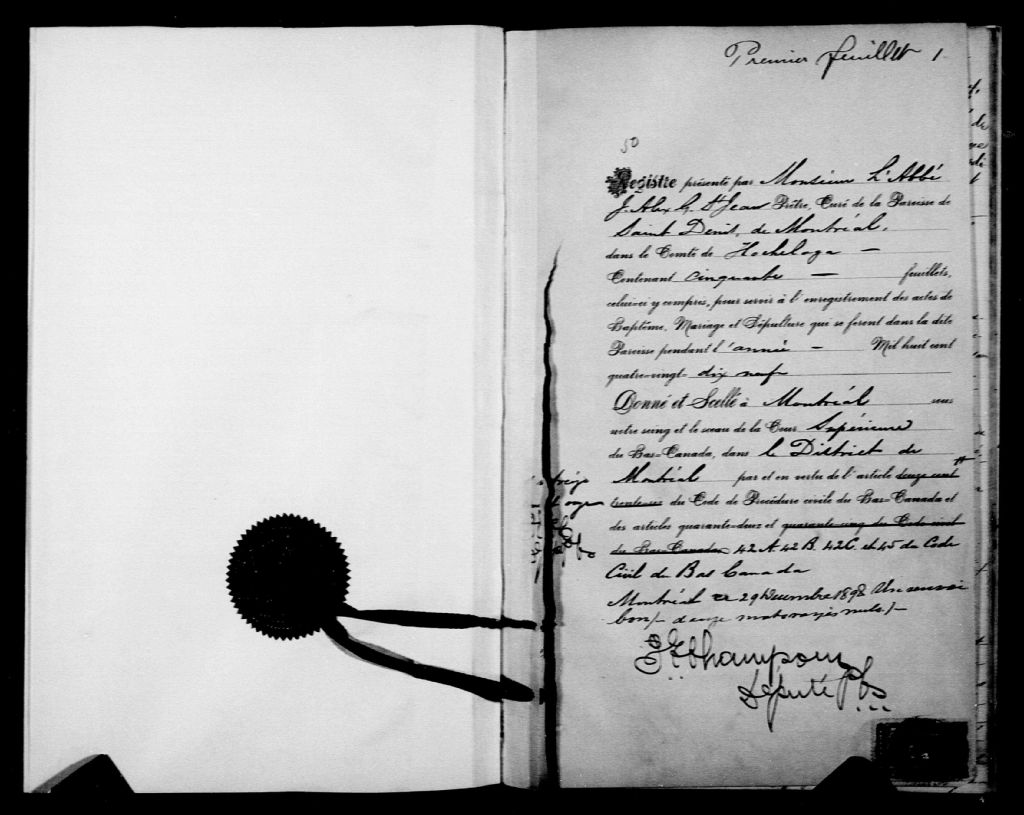 Premier feuillet 1
50
Registre présenté par Monsieur L'Abbé
J. Alex G. St Jean Prêtre, Curé de la Paroisse de
Saint Denis, de Montréal,
dans le Comté de Hochelaga —
Contenant cinquante — feuillets,
celui-ci y compris, pour servir à l'enregistrement des actes de
Baptême, Mariage et Sépulture qui se feront dans la dite
Paroisse pendant l'année — Mil huit cent
quatre-vingt- dix neuf
Donné et Scellé à Montréal sous
notre seing et le sceau de la Cour Supérieure
du Bas-Canada, dans le District de
Montréal par et en vertu de l'article deux cent
trente-six du Code de Procédure civile du Bas-Canada et
des articles quarante-deux et quarante-cinq du Code civil
du Bas-Canada 42A 42B 42C et 45 du Code
Civil du Bas Canada
Montréal ce 29 Décembre 1898 Un renvoi
bon/- deuze mots rayés nuls/-
Député P.C.S.